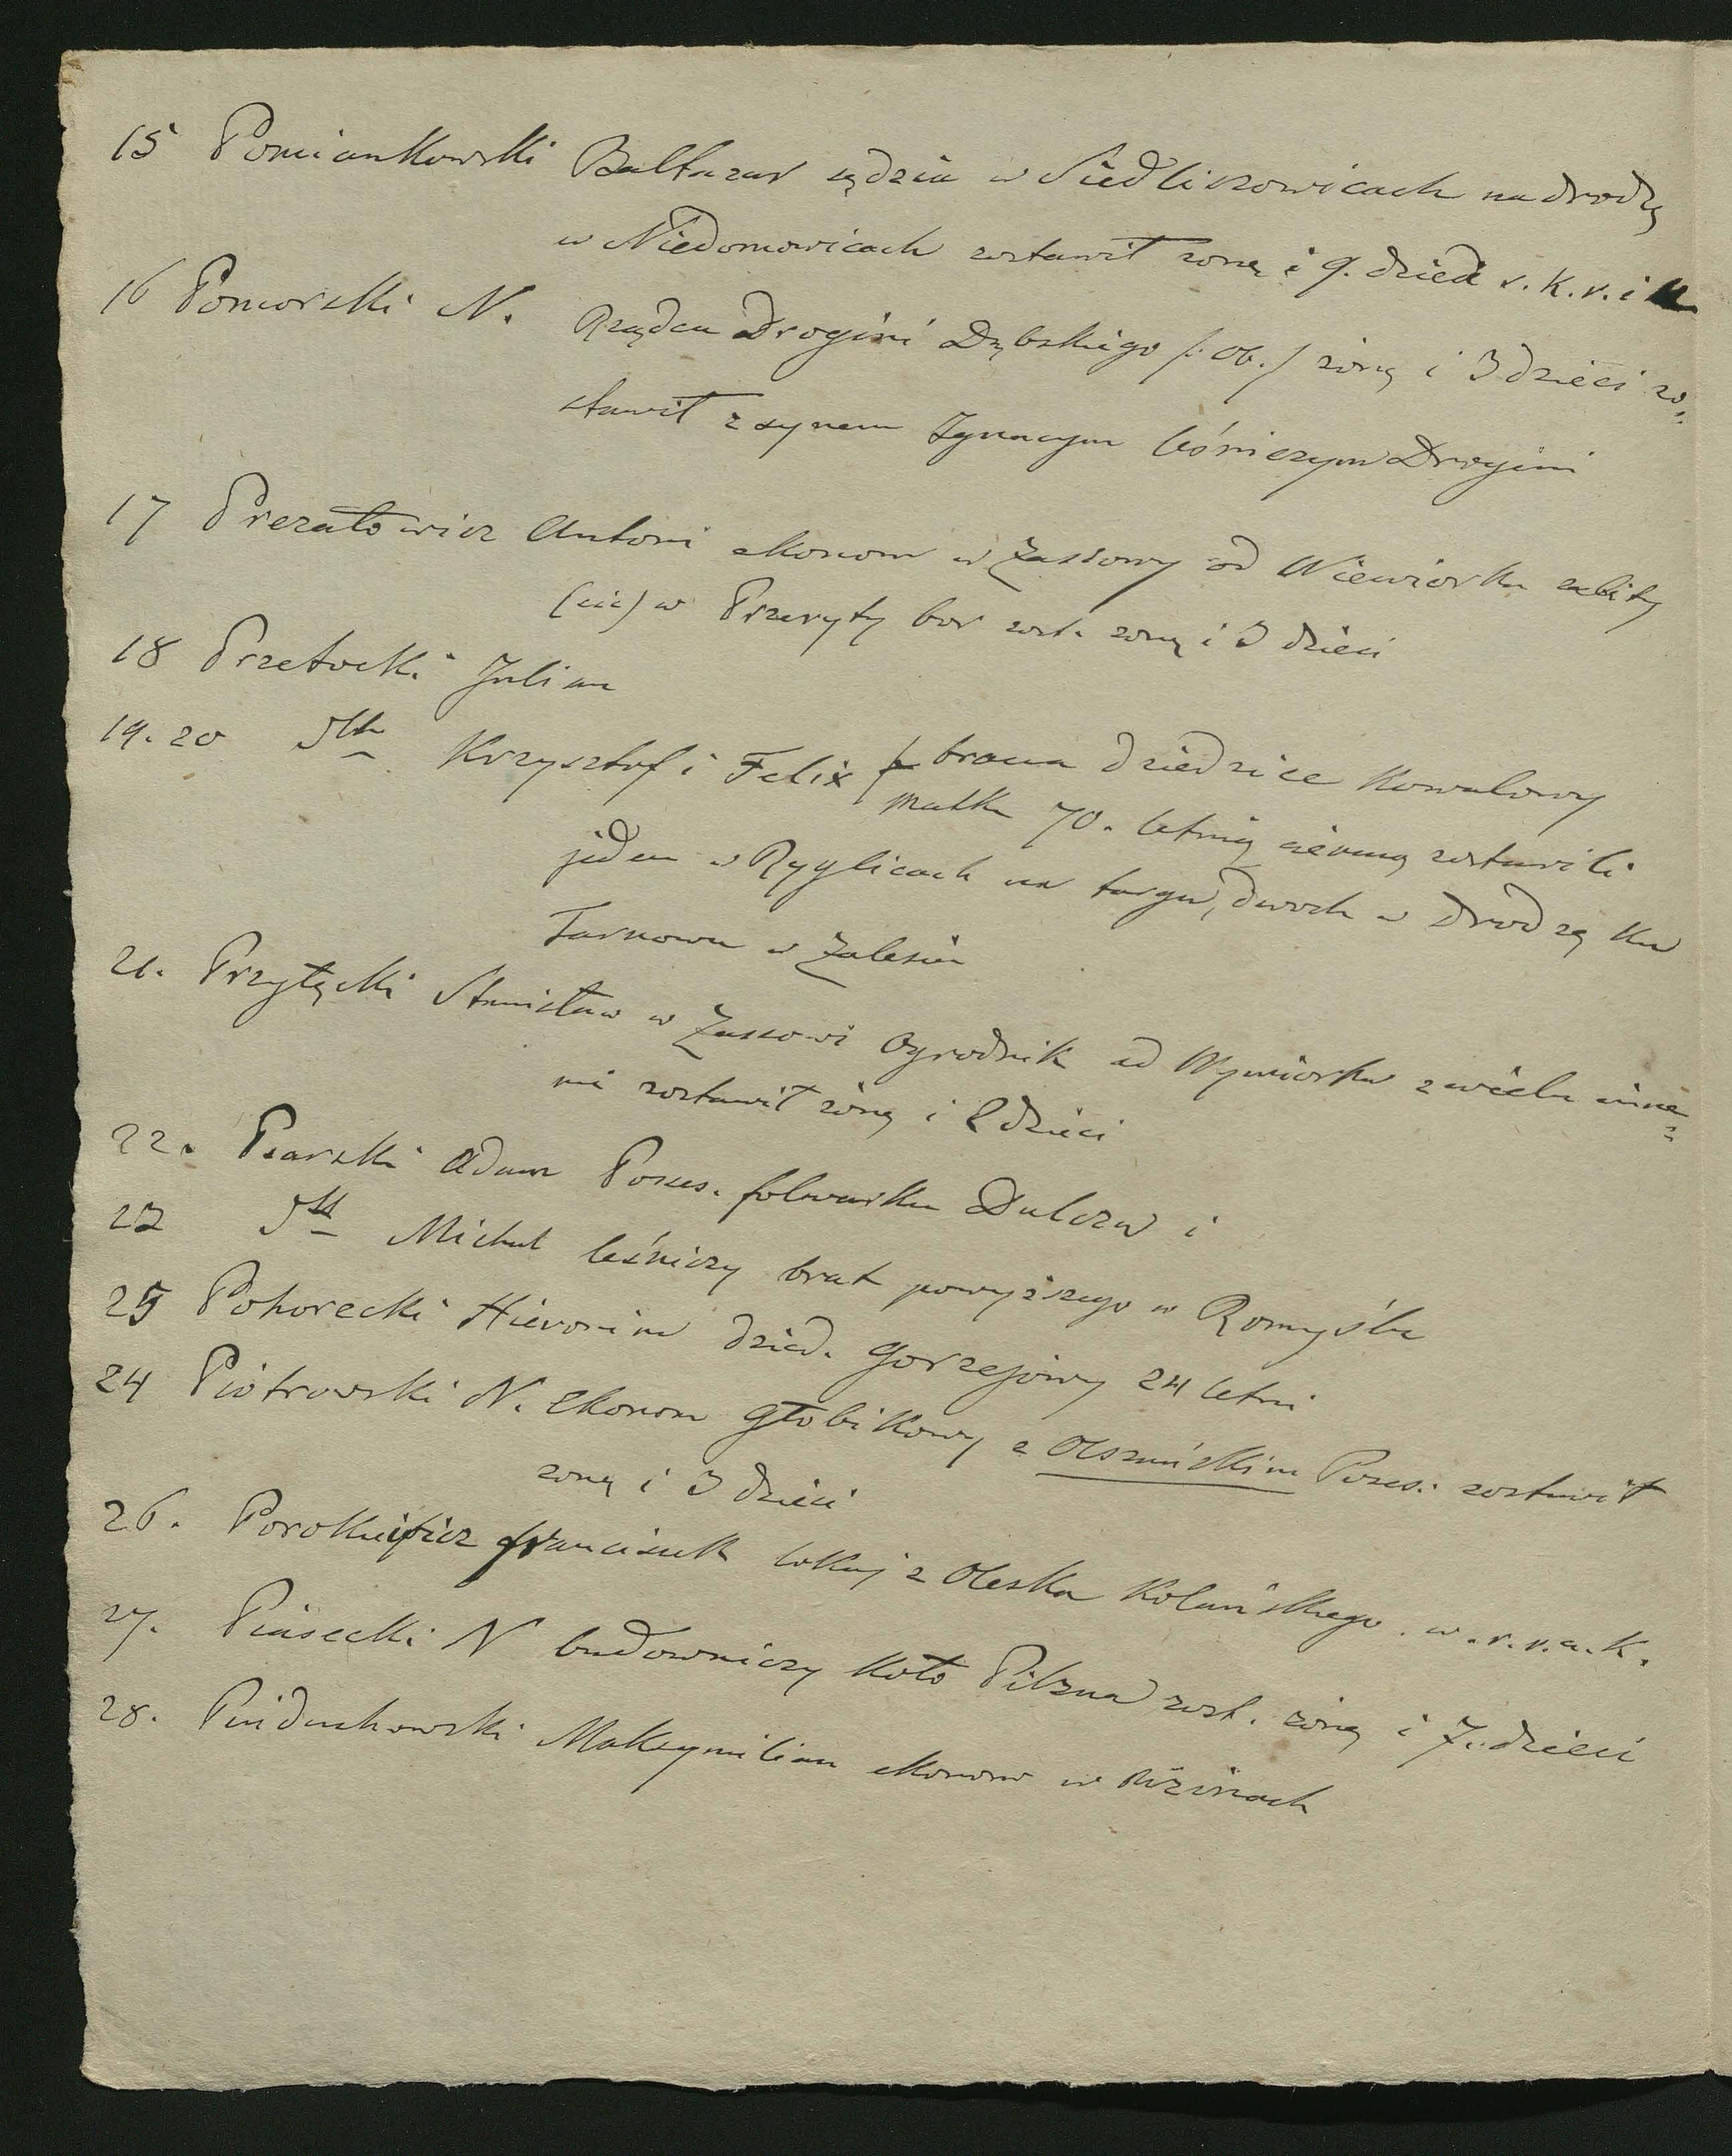 15 Pomiankowski Baltazar sędzia w Siedliszowicach na drodzę
w Niedomowicach zostawił żonę i 9. dzieci s. k. r. i
16 Pomorski N. Rządca Drogini Dębskiego /: ob. / żonę i 3 dzieci zo=
stawił z synem Ignacym leśniczym Drogini
17 Prezatowicz Antoni ekonom w Zassowy od Wiewiorka zabity
w Przeryty bor zost. żonę i 3 dzieci
18 Przetocki Julian
19. 20 Krzysztof i Felix bracia dziedzice Kowalowy
matkę 70. letnią zostawili
jeden w Ryglicach na targu, dwoch w Drodzę ku
Tarnowu w Zalesiu
21. Przyłęcki Stanisław w Zassowi Ogrodnik od Wywiorka z wielu inne=
mi zostawił żonę i 2 dzieci
22. Psarski Adam Posses. folwarku Dulcza i
23 Michał leśniczy brat powyższego w Romyślu
25 Pohorecki Hieronim dzied. Gorzejowy 24 letni
24 Piotrowski N. Ekonom Głobikowy z Olszańskim Posses. zostawił
żonę i 3 dzieci
26. Franciszek lokaj z Oleska Kolańskiego. w. r. r. a. K.
27. Piasecki N budowniczy koło Pilzna zost. żonę i 7. dzieci
28. Piiduchowski Maksymilian ekonom w